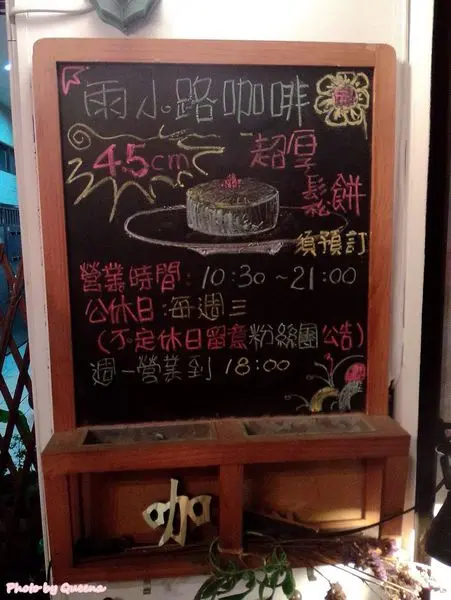 雨小路咖啡
4.5cm
超厚
鬆餅
須預訂
營業時間:10:30~21:00
公休日:每週三
(不定休日留意粉絲團公告)
週一營業到 18:00
咖
Photo by Queena